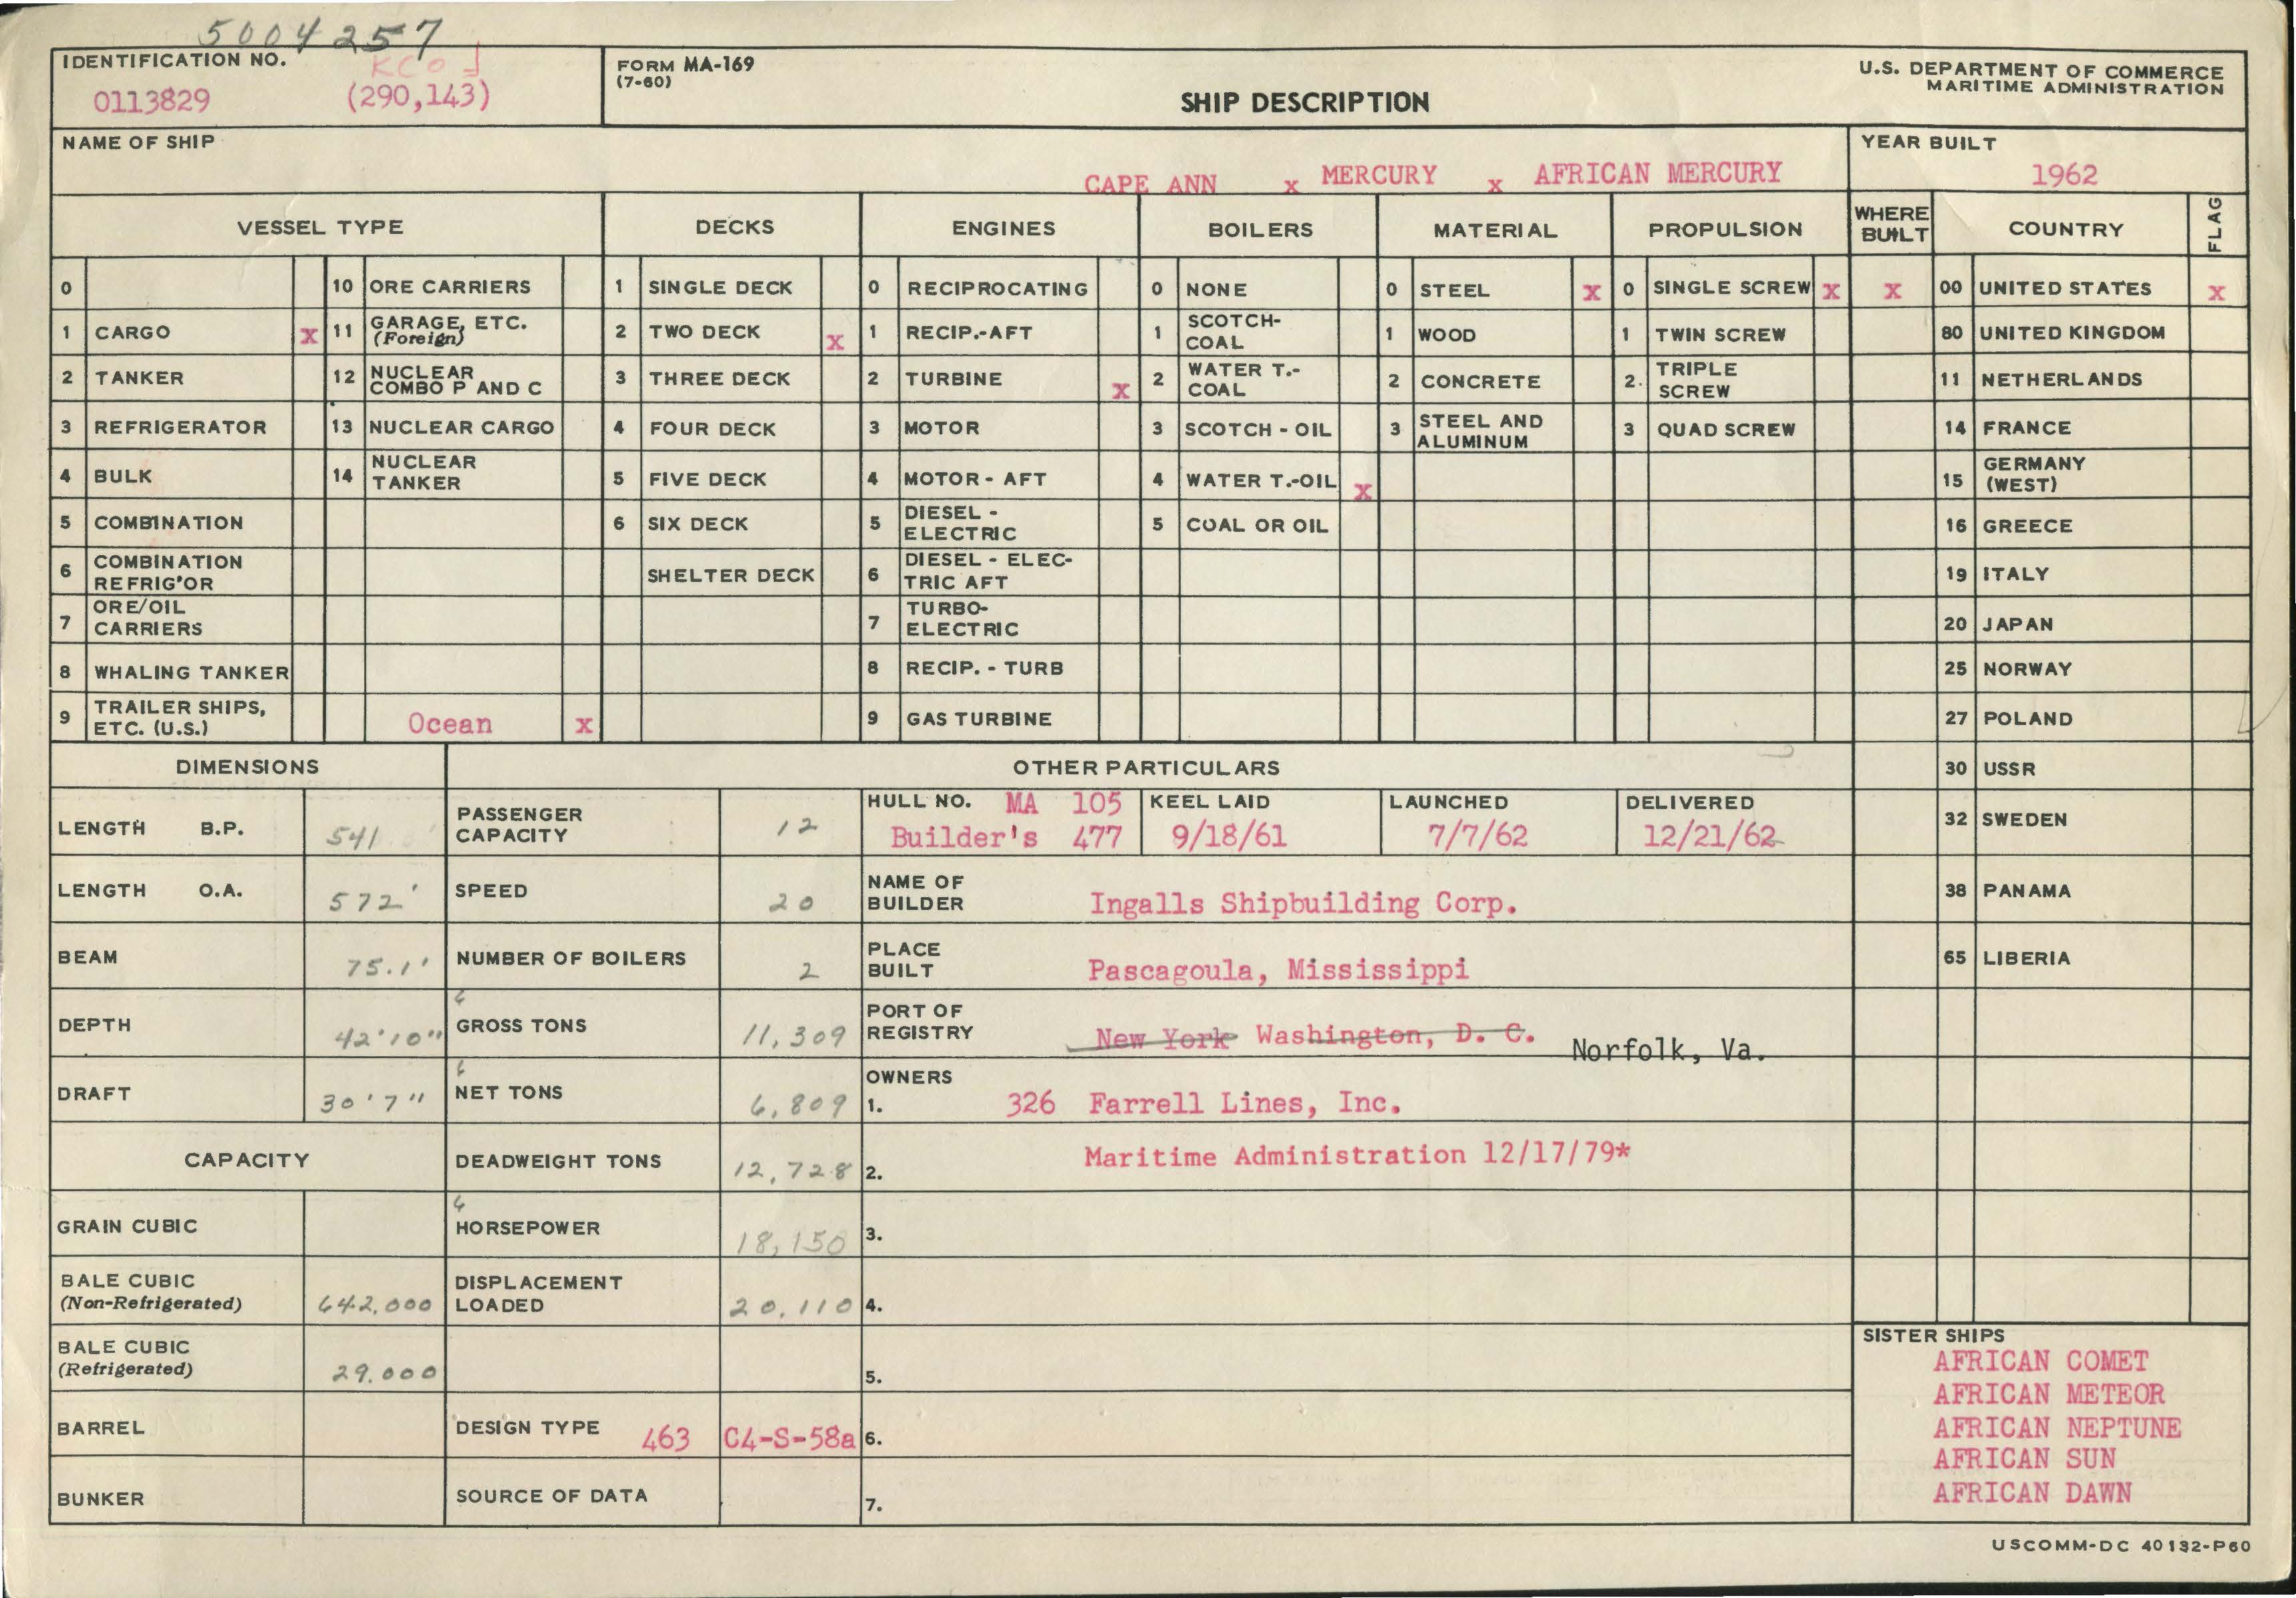 5004257
IDENTIFICATION NO.
0113829 (290,143)
FORM MA-169
(7-60)
SHIP DESCRIPTION
U.S. DEPARTMENT OF COMMERCE
MARITIME ADMINISTRATION
NAME OF SHIP
CAPE ANN x MERCURY x AFRICAN MERCURY
YEAR BUILT
1962
VESSEL TYPE DECKS ENGINES BOILERS MATERIAL PROPULSION WHERE BUILT COUNTRY FLAG
0 10 ORE CARRIERS 1 SINGLE DECK 0 RECIPROCATING 0 NONE 0 STEEL x 0 SINGLE SCREW x x 00 UNITED STATES x
1 CARGO x 11 GARAGE, ETC. (Foreign) 2 TWO DECK x 1 RECIP.-AFT 1 SCOTCH-COAL 1 WOOD 1 TWIN SCREW 80 UNITED KINGDOM
2 TANKER 12 NUCLEAR COMBO P AND C 3 THREE DECK 2 TURBINE x 2 WATER T.-COAL 2 CONCRETE 2. TRIPLE SCREW 11 NETHERLANDS
3 REFRIGERATOR 13 NUCLEAR CARGO 4 FOUR DECK 3 MOTOR 3 SCOTCH - OIL 3 STEEL AND ALUMINUM 3 QUAD SCREW 14 FRANCE
4 BULK 14 NUCLEAR TANKER 5 FIVE DECK 4 MOTOR - AFT 4 WATER T.-OIL x 15 GERMANY (WEST)
5 COMBINATION 6 SIX DECK 5 DIESEL - ELECTRIC 5 COAL OR OIL 16 GREECE
6 COMBINATION REFRIG'OR SHELTER DECK 6 DIESEL - ELECTRIC AFT 19 ITALY
7 ORE/OIL CARRIERS 7 TURBO-ELECTRIC 20 JAPAN
8 WHALING TANKER 8 RECIP. - TURB 25 NORWAY
9 TRAILER SHIPS, ETC. (U.S.) Ocean x 9 GAS TURBINE 27 POLAND
DIMENSIONS OTHER PARTICULARS 30 USSR
LENGTH B.P. 541 PASSENGER CAPACITY 12 HULL NO. MA 105 Builder's 477 KEEL LAID 9/18/61 LAUNCHED 7/7/62 DELIVERED 12/21/62 32 SWEDEN
LENGTH O.A. 572' SPEED 20 NAME OF BUILDER Ingalls Shipbuilding Corp. 38 PANAMA
BEAM 75.1' NUMBER OF BOILERS 2 PLACE BUILT Pascagoula, Mississippi 65 LIBERIA
DEPTH 42'10" GROSS TONS 11,309 PORT OF REGISTRY New York Washington, D. C. Norfolk, Va.
DRAFT 30'7" NET TONS 6,809 OWNERS 1. 326 Farrell Lines, Inc.
CAPACITY DEADWEIGHT TONS 12,728 2. Maritime Administration 12/17/79*
GRAIN CUBIC HORSEPOWER 18,150 3.
BALE CUBIC (Non-Refrigerated) 642,000 DISPLACEMENT LOADED 20,110 4.
BALE CUBIC (Refrigerated) 29,000 5.
BARREL DESIGN TYPE 463 C4-S-58a 6.
BUNKER SOURCE OF DATA 7.
SISTER SHIPS
AFRICAN COMET
AFRICAN METEOR
AFRICAN NEPTUNE
AFRICAN SUN
AFRICAN DAWN
USCOMM-DC 40132-P60